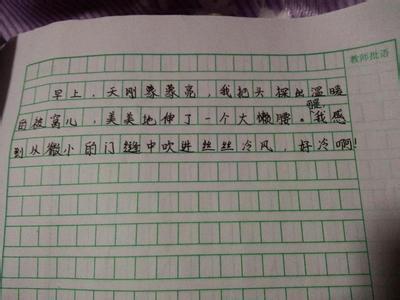 教师批语
早上，天刚蒙蒙亮，我把头探出温暖
的被窝儿，美美地伸了一个大懒腰。我感
到从微小的门缝中吹进丝丝冷风，好冷啊！